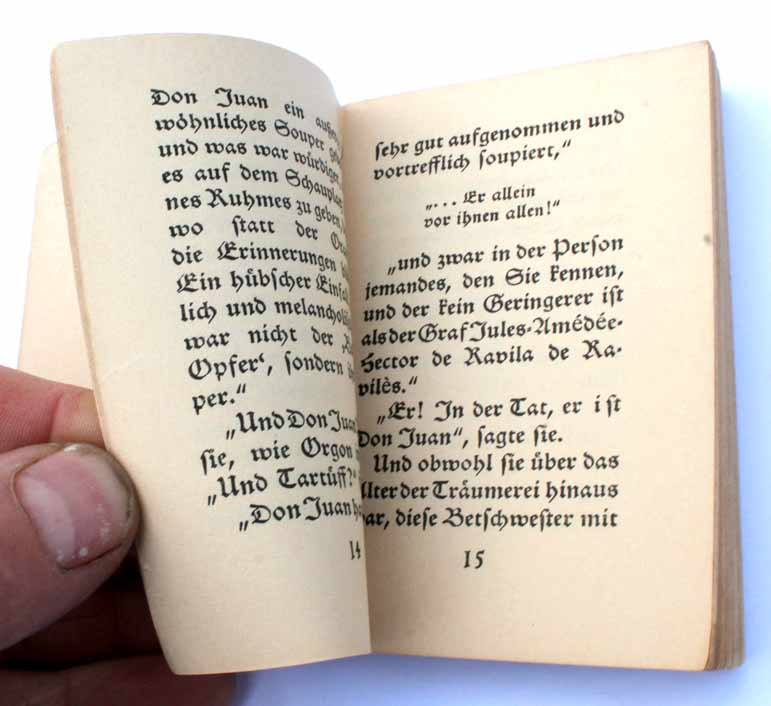 Don Juan ein
wöhnliches Souper
und was war würdiger
es auf dem
nes Ruhmes zu geben,
wo statt der
die Erinnerungen
Ein hübscher
lich und
war nicht der
Opfer‘, sondern
per.“
„Und Don Juan
sie, wie Orgon
„Und Tartüff?“
„Don Juan
14
sehr gut aufgenommen und
vortrefflich soupiert,“
„... Er allein
vor ihnen allen!“
„und zwar in der Person
jemandes, den Sie kennen,
und der kein Geringerer ist
als der Graf Jules-Amédée-
Hector de Ravila de Ra-
vilès.“
„Er! In der Tat, er ist
Don Juan“, sagte sie.
Und obwohl sie über das
Alter der Träumerei hinaus
war, diese Betschwester mit
15